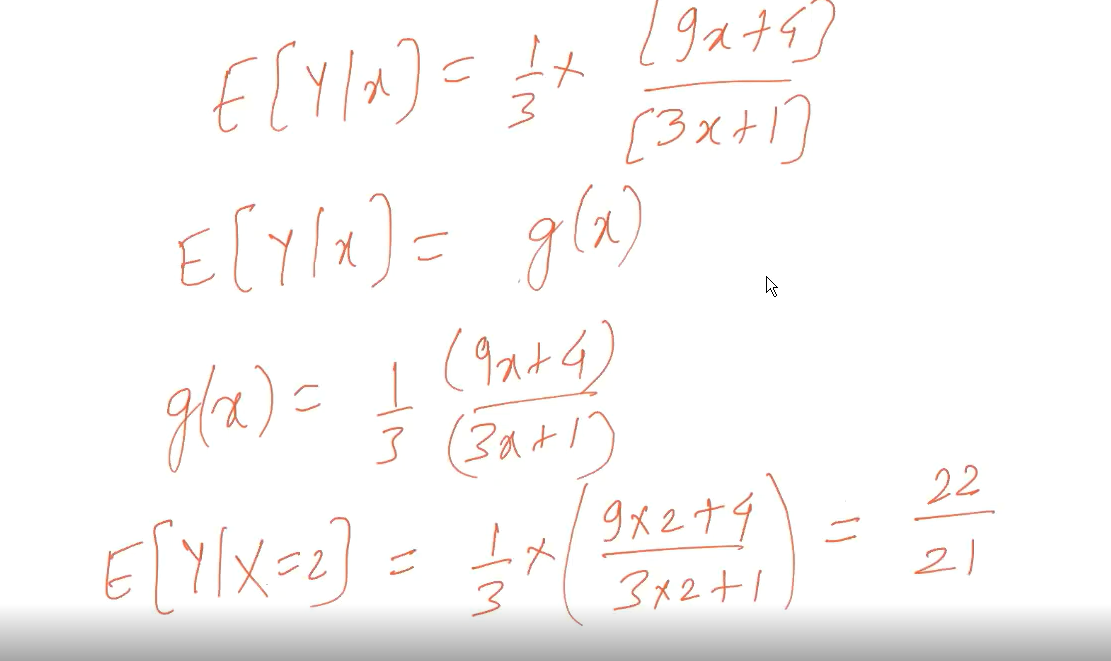 E[Y|x] = 1/3 × [9x+4]/[3x+1]
E[Y|x] = g(x)
g(x) = 1/3 (9x+4)/(3x+1)
E[Y|X=2] = 1/3 × (9×2+4/3×2+1) = 22/21